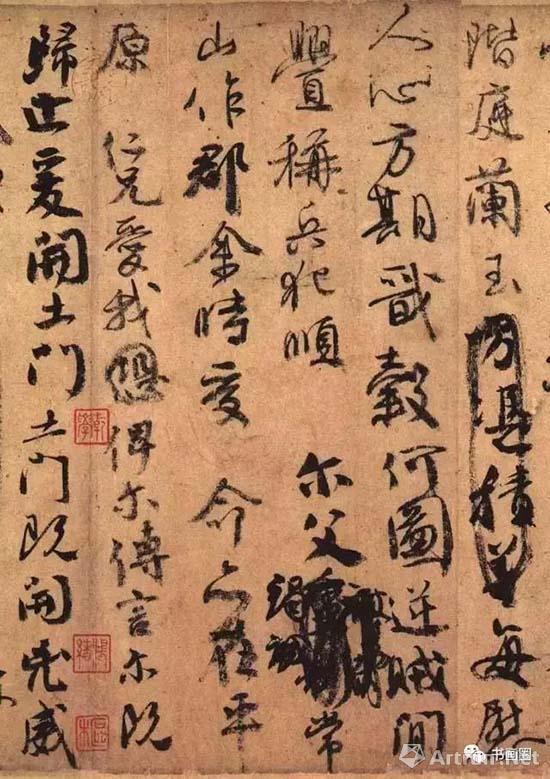 階庭蘭玉方憑積善每慰
人心方期戩穀何圖逆賊間
舋稱兵犯順 尔父竭誠常
山作郡余時受 命亦在平
原 仁兄愛我恐俾尔傳言尔既
歸止爰開土門土門既開兇威
书画圈
Artron.Net